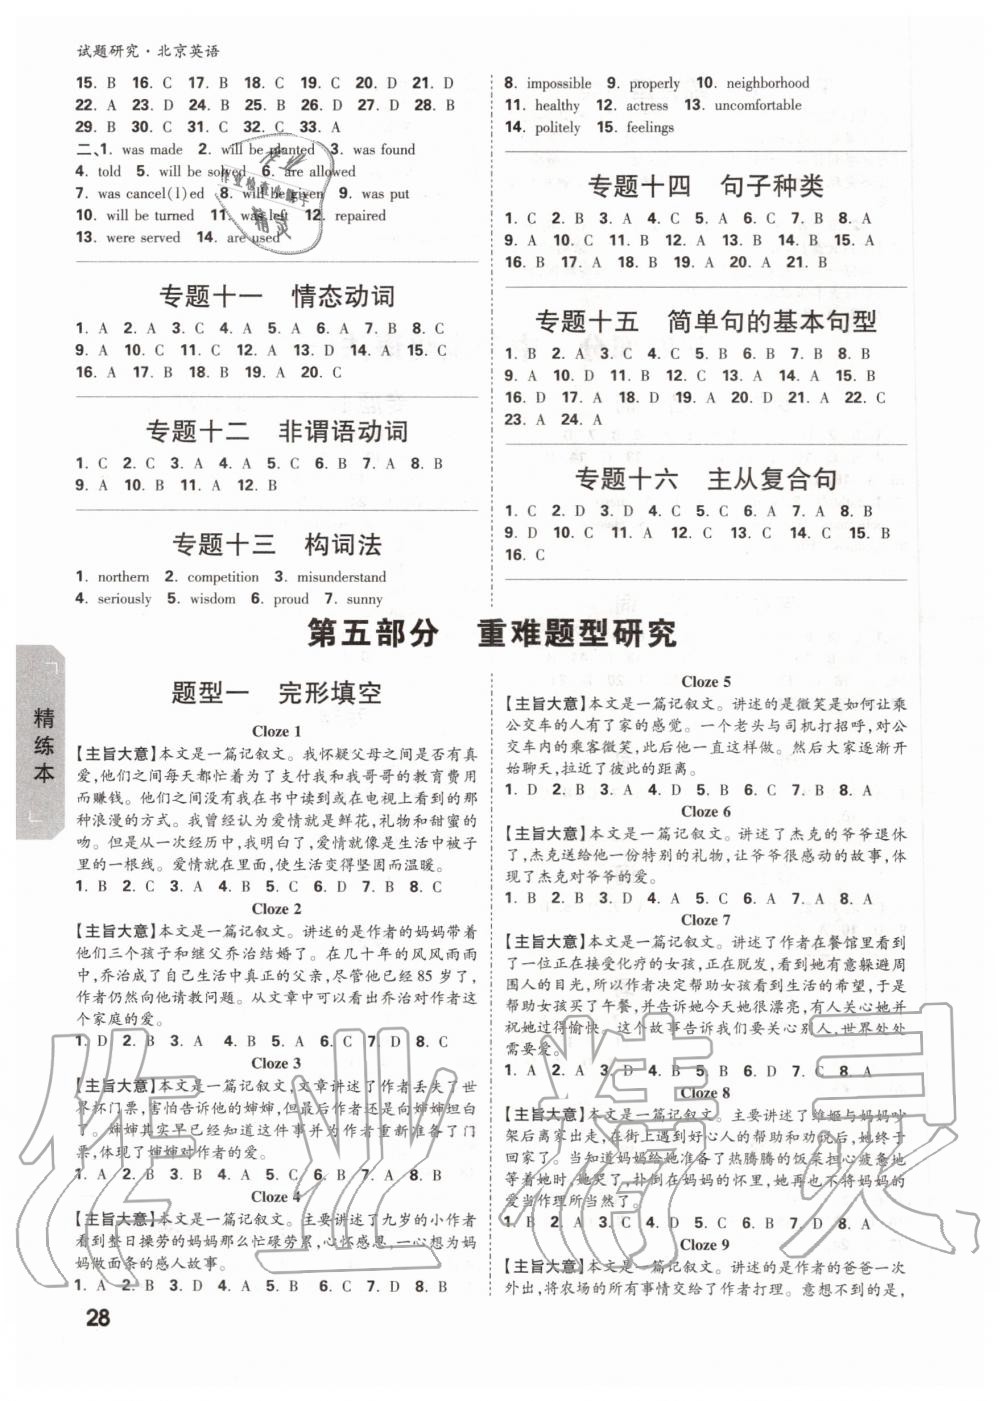 试题研究·北京英语
15. B 16. C 17. B 18. B 19. C 20. D 21. D
22. A 23. D 24. B 25. B 26. D 27. D 28. B
29. B 30. C 31. C 32. C 33. A
二、1. was made 2. will be planted 3. was found
4. told 5. will be solved 6. are allowed
7. was cancel(l)ed 8. will be given 9. was put
10. will be turned 11. was left 12. repaired
13. were served 14. are used
专题十一 情态动词
1. A 2. A 3. C 4. A 5. A 6. A 7. B 8. C
9. A 10. C 11. C 12. C 13. B 14. A 15. C
16. A 17. A 18. B 19. A 20. C
专题十二 非谓语动词
1. C 2. C 3. A 4. A 5. B 6. B 7. A 8. B
9. A 10. B 11. A 12. B
专题十三 构词法
1. northern 2. competition 3. misunderstand
4. seriously 5. wisdom 6. proud 7. sunny
8. impossible 9. properly 10. neighborhood
11. healthy 12. actress 13. uncomfortable
14. politely 15. feelings
专题十四 句子种类
1. C 2. B 3. A 4. C 5. A 6. C 7. B 8. A
9. A 10. C 11. A 12. B 13. B 14. B 15. A
16. B 17. A 18. B 19. A 20. A 21. B
专题十五 简单句的基本句型
1. B 2. A 3. C 4. B 5. A 6. A 7. A 8. B
9. A 10. D 11. B 12. C 13. B 14. A 15. B
16. D 17. A 18. D 19. A 20. D 21. A 22. C
23. A 24. A
专题十六 主从复合句
1. C 2. D 3. D 4. C 5. C 6. A 7. A 8. B
9. D 10. C 11. A 12. C 13. C 14. C 15. B
16. C
第五部分 重难题型研究
题型一 完形填空
Cloze 1
【主旨大意】本文是一篇记叙文。我怀疑父母之间是否有真
爱,他们之间每天都忙着为了支付我和我哥哥的教育费用
而赚钱。他们之间从来没有我在书中读到或在电视上看到的那
种浪漫的方式。我曾经认为爱情就是鲜花,礼物和甜蜜的
吻。但是从一次经历中,我明白了,爱情就像是生活中被子
里的一根线。爱情就在里面,使生活变得坚固而温暖。
1. B 2. C 3. A 4. B 5. C 6. D 7. B 8. C
Cloze 2
【主旨大意】本文是一篇记叙文。讲述的是作者的妈妈带着
他们三个孩子和继父乔治结婚了。在几十年的风风雨雨
中,乔治成了自己生活中真正的父亲,尽管他已经 85 岁了,
作者仍然向他请教问题。从文章中可以看出乔治对作者这
个家庭的爱。
1. D 2. B 3. A 4. B 5. A 6. C 7. D 8. C
Cloze 3
【主旨大意】本文是一篇记叙文,文章讲述了作者丢失了世
界杯门票,害怕告诉他的婶婶,但最后作者还是向婶婶坦白
了。婶婶其实早已经知道这件事并为作者重新准备了门
票,体现了婶婶对作者的爱。
1. A 2. B 3. B 4. A 5. C 6. B 7. A 8. B
Cloze 4
【主旨大意】本文是一篇记叙文。主要讲述了九岁的小作者
看到整日操劳的妈妈那么忙碌劳累,心怀感恩,一心想为妈
妈做面条的感人故事。
1. A 2. B 3. D 4. A 5. B 6. C 7. D 8. B
Cloze 5
【主旨大意】本文是一篇记叙文。讲述的是微笑是如何让乘
公交车的人有了家的感觉。一个老头与司机打招呼,对公
交车内的乘客微笑,此后他一直这样做。然后大家逐渐开
始聊天,拉近了彼此的距离。
1. D 2. B 3. A 4. B 5. C 6. C 7. D 8. A
Cloze 6
【主旨大意】本文是一篇记叙文。讲述了杰克的爷爷退休
了,杰克送给他一份特别的礼物,让爷爷很感动的故事,体
现了杰克对爷爷的爱。
1. B 2. B 3. D 4. A 5. C 6. A 7. A 8. A
Cloze 7
【主旨大意】本文是一篇记叙文。讲述了作者在餐馆里看到
了一位正在接受化疗的女孩,正在脱发,看到她有意躲避周
围人的目光,所以作者决定帮助女孩看到生活的希望,于是
帮助女孩买了午餐,并告诉她今天她很漂亮,有人关心她并
祝她过得愉快。这个故事告诉我们要关心别人,世界处处
需要爱。
1. A 2. A 3. D 4. B 5. C 6. B 7. D 8. A
Cloze 8
【主旨大意】本文是一篇记叙文。主要讲述了雏姬与妈妈吵
架后离家出走,在街上遇到好心人的帮助和劝说后,她终于
回家了。当知道妈妈给她准备了热腾腾的饭菜担心疲惫地
等着她时,她哭了,扑倒在妈妈的怀里,她再也不将妈妈的
爱当作理所当然了。
1. B 2. D 3. A 4. C 5. C 6. B 7. D 8. A
Cloze 9
【主旨大意】本文是一篇记叙文。讲述的是作者的爸爸一次
外出,将农场的所有事情交给了作者打理。意想不到的是,
精练本
28
作业精灵